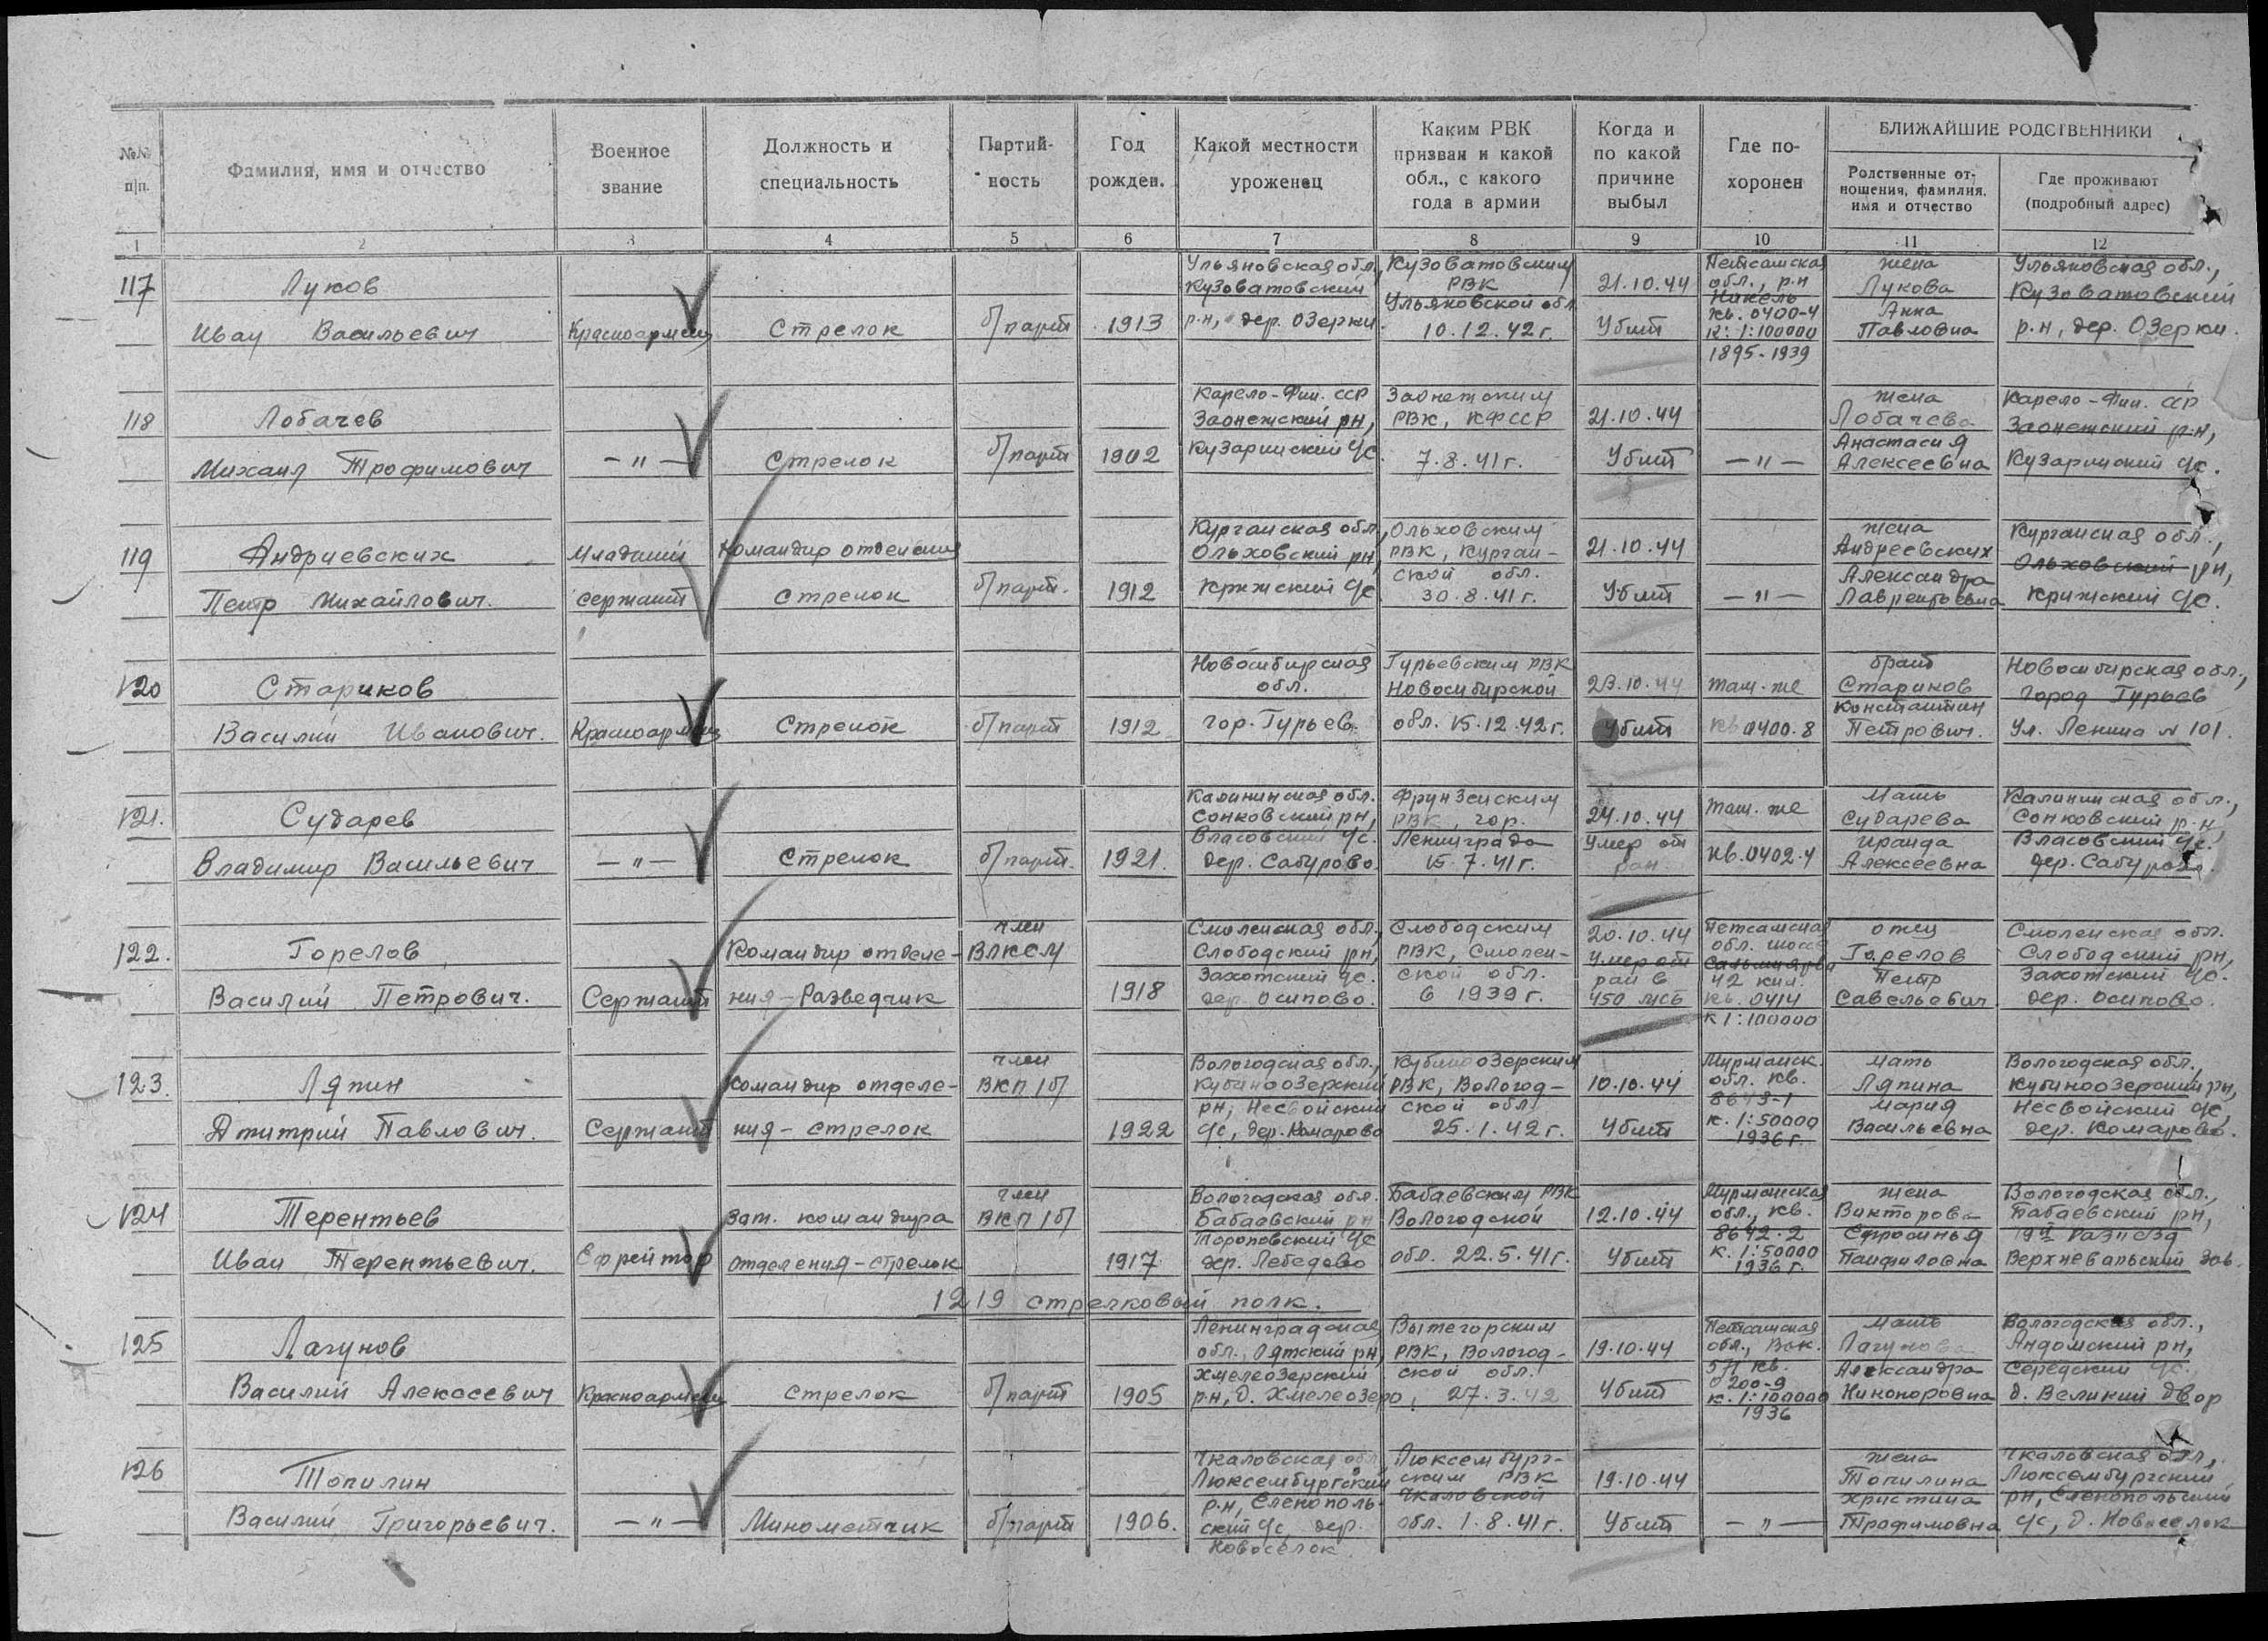 №№ п|п.
Фамилия, имя и отчество
Военное звание
Должность и специальность
Партий-
ность
Год рожден.
Какой местности уроженец
Каким РВК
призван и какой
обл., с какого
года в армии
Когда и
по какой
причине
выбыл
Где по-
хоронен
БЛИЖАЙШИЕ РОДСТВЕННИКИ
Родственные от-
ношения, фамилия,
имя и отчество
Где проживают
(подробный адрес)
1 2 3 4 5 6 7 8 9 10 11 12
117
Луков
Иван Васильевич
Красноармеец
Стрелок
б/парт
1913
Ульяновская обл.,
Кузоватовский
р-н, дер. Озерки
Кузоватовским
РВК
Ульяновской обл
10.12.42 г.
21.10.44
Убит
Петсамская
обл., р-н
Никель
кв. 0400-4
к: 1:100000
1895-1939
жена
Лукова
Анна
Павловна
Ульяновская обл.,
Кузоватовский
р-н, дер. Озерки.
118
Лобачев
Михаил Трофимович
— " —
Стрелок
б/парт
1902
Карело-Фин. ССР
Заонежский рн,
Кузаринский с/с.
Заонежским
РВК, КФССР
7.8.41 г.
21.10.44
Убит
— " —
жена
Лобачева
Анастасия
Алексеевна
Карело-Фин. ССР
Заонежский р-н,
Кузаринский с/с.
119
Андриевских
Петр Михайлович.
Младший
сержант
Командир отделения
стрелок
б/парт.
1912
Курганская обл.,
Ольховский рн,
Крижский с/с
Ольховским
РВК, Курган-
ской обл.
30.8.41 г.
21.10.44
Убит
— " —
жена
Андреевских
Александра
Лаврентьевна
Курганская обл.,
Ольховский рн,
Крижский с/с.
120
Стариков
Василий Иванович.
Красноармеец
Стрелок
б/парт
1912
Новосибирская
обл.
гор. Гурьев
Гурьевским РВК
Новосибирской
обл. 15.12.42 г.
23.10.44
Убит
там-же
кв 0400.8
брат
Стариков
Константин
Петрович.
Новосибирская обл.,
город Гурьев
ул. Ленина N 101.
121.
Сударев
Владимир Васильевич
— " —
Стрелок
б/парт.
1921.
Калининская обл.
Сонковский рн,
Власовский с/с.
дер. Сабурово.
Фрунзенским
РВК, гор.
Ленинграда
15.7.41 г.
24.10.44
Умер от
ран.
там-же
кв. 0402.4
Мать
Сударева
Ираида
Алексеевна
Калининская обл.,
Сонковский р-н,
Власовский с/с.
дер. Сабурово.
122.
Горелов
Василий Петрович.
Сержант
Командир отделе-
ния-Разведчик
член
ВЛКСМ
1918
Смоленская обл.,
Слободский рн,
Захотский с/с.
дер. Осипово.
Слободским
РВК, Смолен-
ской обл.
в 1939 г.
20.10.44
Умер от
ран в
450 МСБ
Петсамская
обл. шоссе
42 км.
кв. 0414
к 1:100000
отец
Горелов
Петр
Савельевич
Смоленская обл.
Слободский рн,
Захотский с/с.
дер. Осипово.
123.
Ляпин
Дмитрий Павлович.
Сержант
Командир отделе-
ния-стрелок
член
ВКП/б/
1922
Вологодская обл.,
Кубиноозерский
рн, Несвойский
с/с, дер. Комарово
Кубиноозерским
РВК, Вологод-
ской обл.
25.1.42 г.
10.10.44
Убит
Мурманск.
обл. кв.
8643-1
к. 1:50000
1936 г.
мать
Ляпина
Мария
Васильевна
Вологодская обл.,
Кубиноозерский рн,
Несвойский с/с,
дер. Комарово.
124
Терентьев
Иван Терентьевич.
Ефрейтор
Зам. командира
отделения-стрелок
член
ВКП/б/
1917
Вологодская обл.
Бабаевский рн
Тороповский с/с
дер. Лебедево
Бабаевским РВК
Вологодской
обл. 22.5.41 г.
12.10.44
Убит
Мурманская
обл., кв.
8642.2
к. 1:50000
1936 г.
жена
Викторова
Ефросинья
Панфиловна
Вологодская обл.,
Бабаевский рн,
19й разъезд
Верхневальский зав.
1219 стрелковый полк.
125
Лагунов
Василий Алексеевич
Красноармеец
стрелок
б/парт
1905
Ленинградская
обл., Оятский рн,
Хмелеозерский
р-н, д. Хмелеозеро,
Вытегорским
РВК, Вологод-
ской обл.
27.3.42
19.10.44
Убит
Петсамская
обл., Вост.
571 кв.
0200-9
к. 1:100000
1936
мать
Лагунова
Александра
Никоноровна
Вологодская обл.,
Андомский рн,
Середский с/с.
д. Великий двор
126
Топилин
Василий Григорьевич.
— " —
Минометчик
б/парт
1906.
Чкаловская обл
Люксембургский
р-н, Еленополь-
ский с/с, дер.
Новоселок
Люксембург-
ским РВК
Чкаловской
обл. 1.8.41 г.
19.10.44
Убит
— " —
жена
Топилина
Христина
Трофимовна
Чкаловская обл.,
Люксембургский
рн, Еленопольский
с/с, д. Новоселок